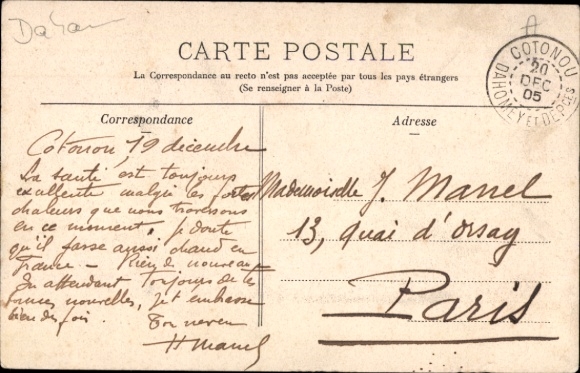 Dahom
A
CARTE POSTALE
La Correspondance au recto n'est pas acceptée par tous les pays étrangers
(Se renseigner à la Poste)
COTONOU
20
DEC
05
DAHOMEY ET DEPCES
Correspondance
Cotonou 19 décembre
La santé est toujours
excellente malgré les fortes
chaleurs que nous traversons
en ce moment. Je doute
qu'il fasse aussi chaud en
France. — Rien de nouveau
En attendant toujours de tes
bonnes nouvelles, je t'embrasse
bien des fois.
Ton neveu
H Manel
Adresse
Mademoiselle J. Manel
13, quai d'Orsay
Paris